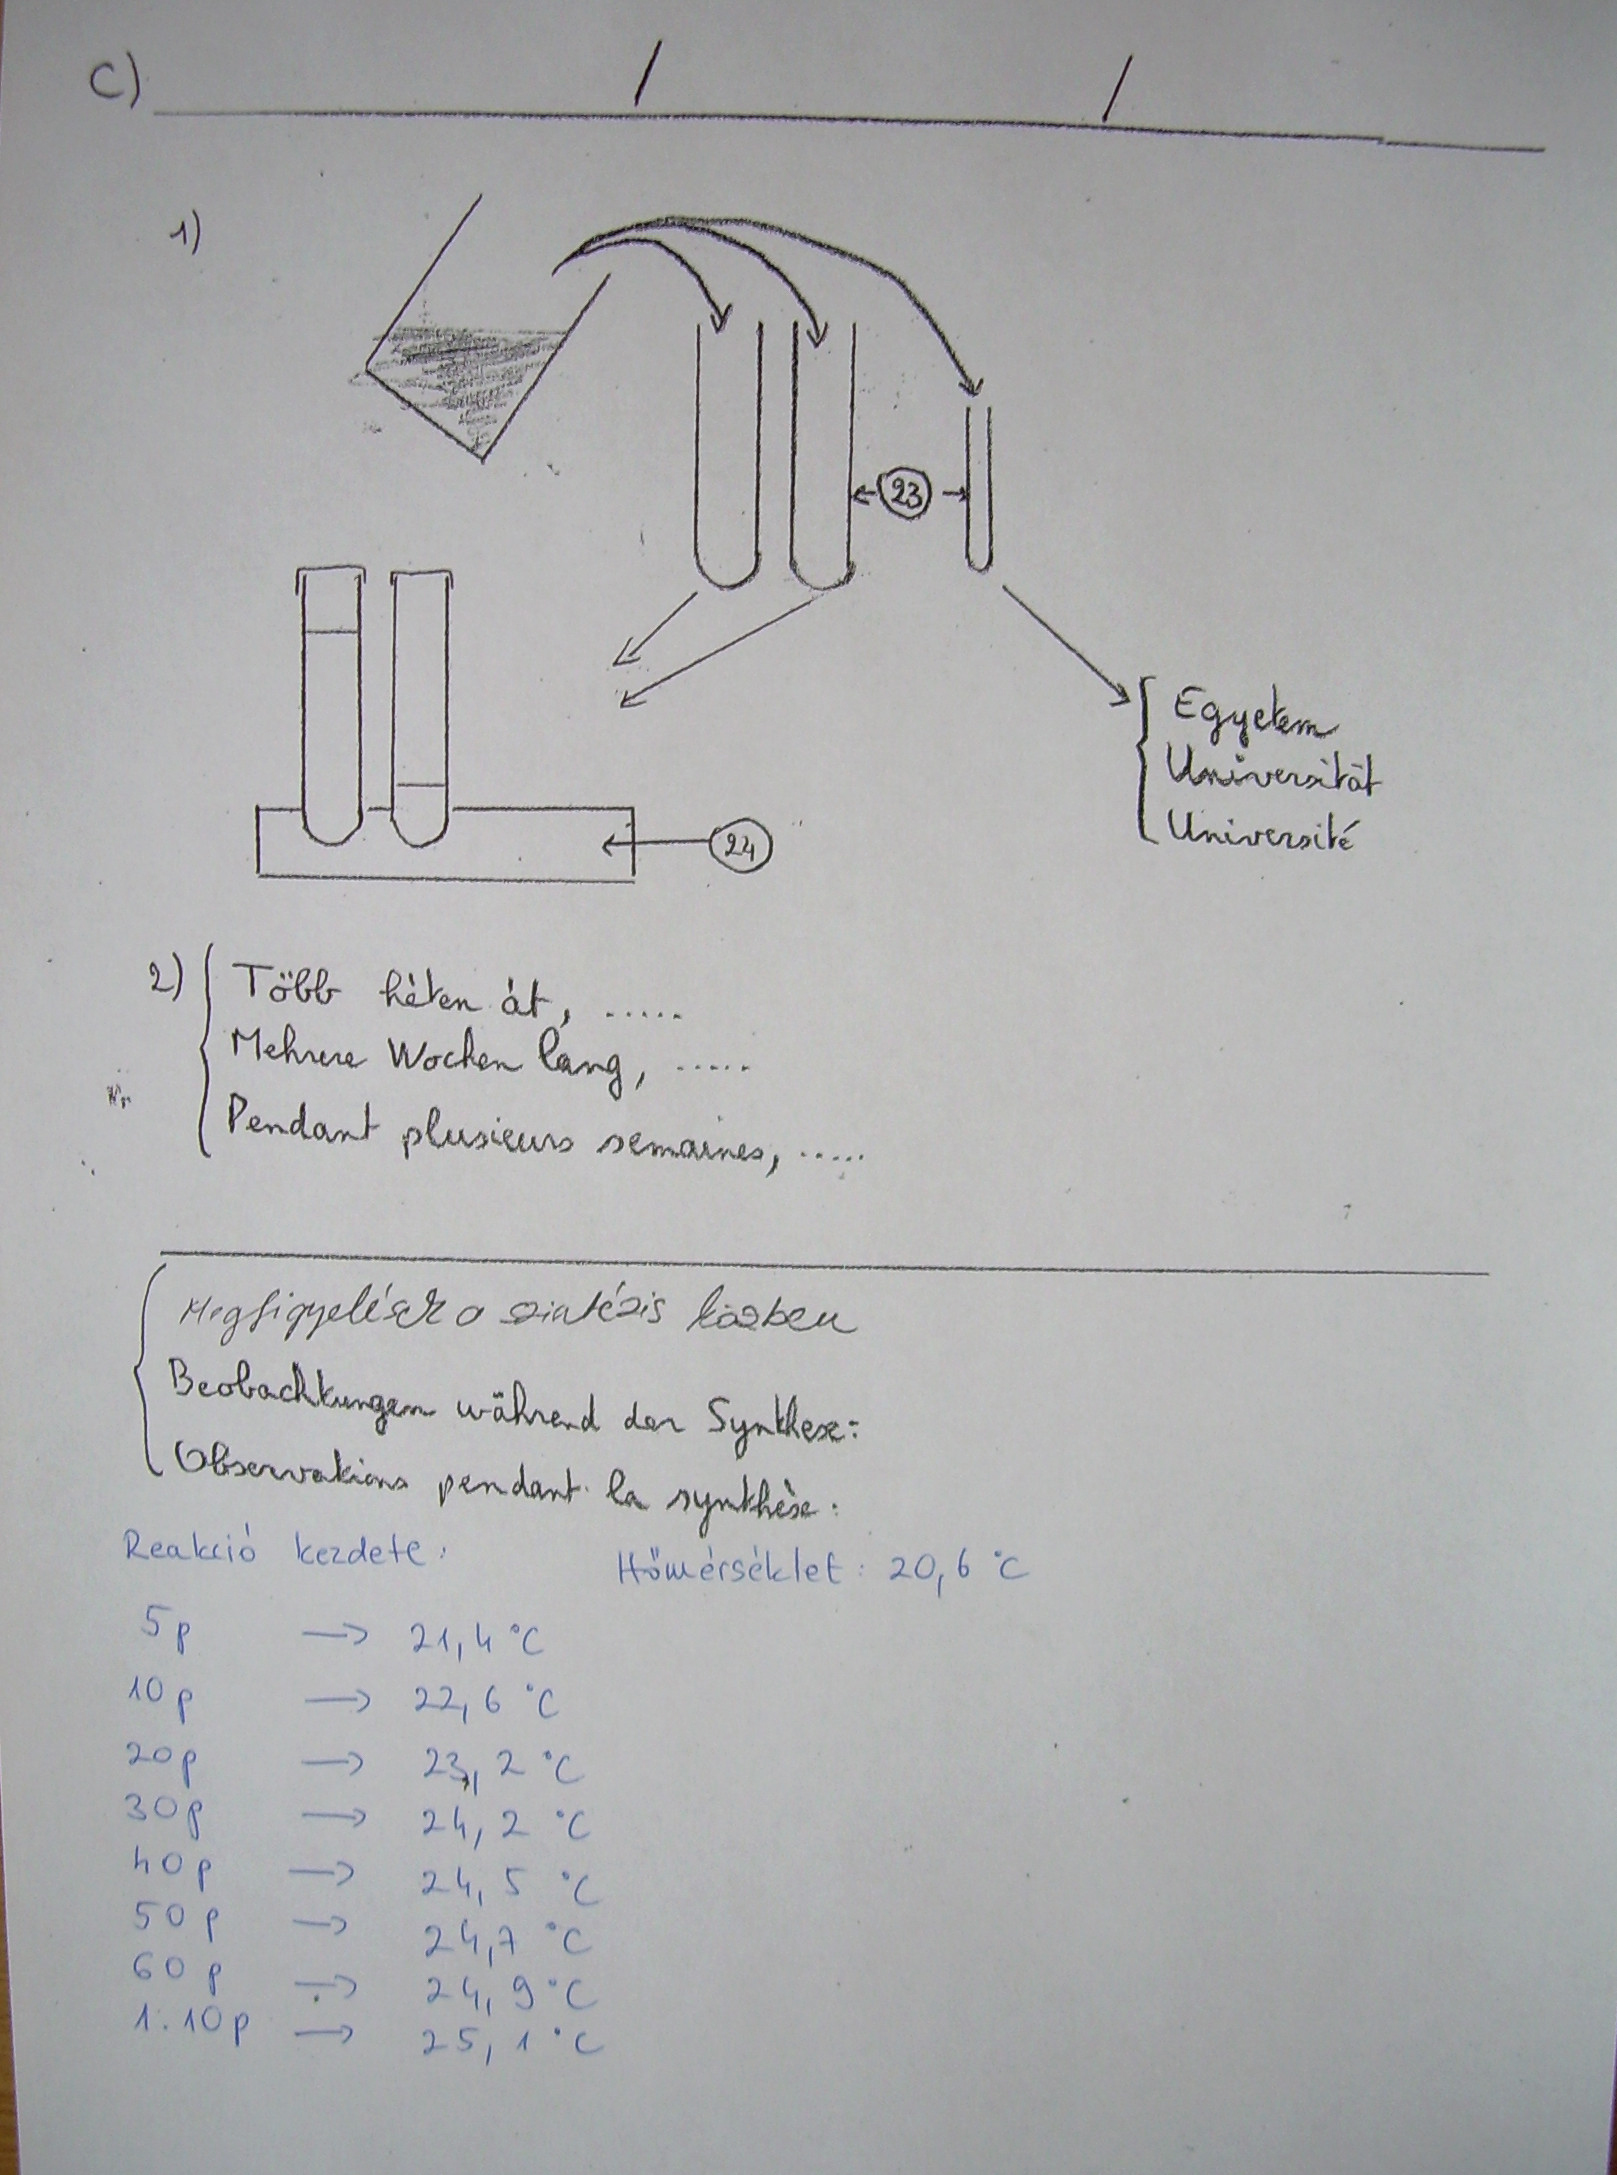 C)
/ /
1)
23
Egyetem
Universität
Université
24
2) Több héten át, .....
Mehrere Wochen lang, .....
Pendant plusieurs semaines, .....
Megfigyelések a szintézis közben
Beobachtungen während der Synthese:
Observations pendant la synthèse:
Reakció kezdete: Hőmérséklet: 20,6 °C
5p → 21,4 °C
10p → 22,6 °C
20p → 23,2 °C
30p → 24,2 °C
40p → 24,5 °C
50p → 24,7 °C
60p → 24,9 °C
1.10p → 25,1 °C